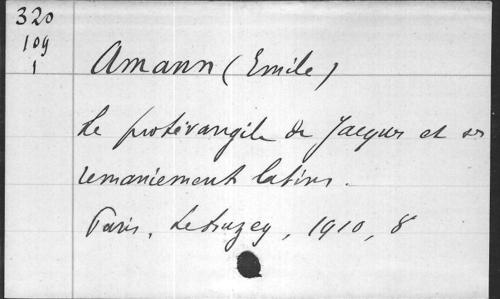 320
109
1
Amann (Emile)
Le protévangile de Jacques et ses
remaniements latins.
Paris, Letouzey, 1910, 8